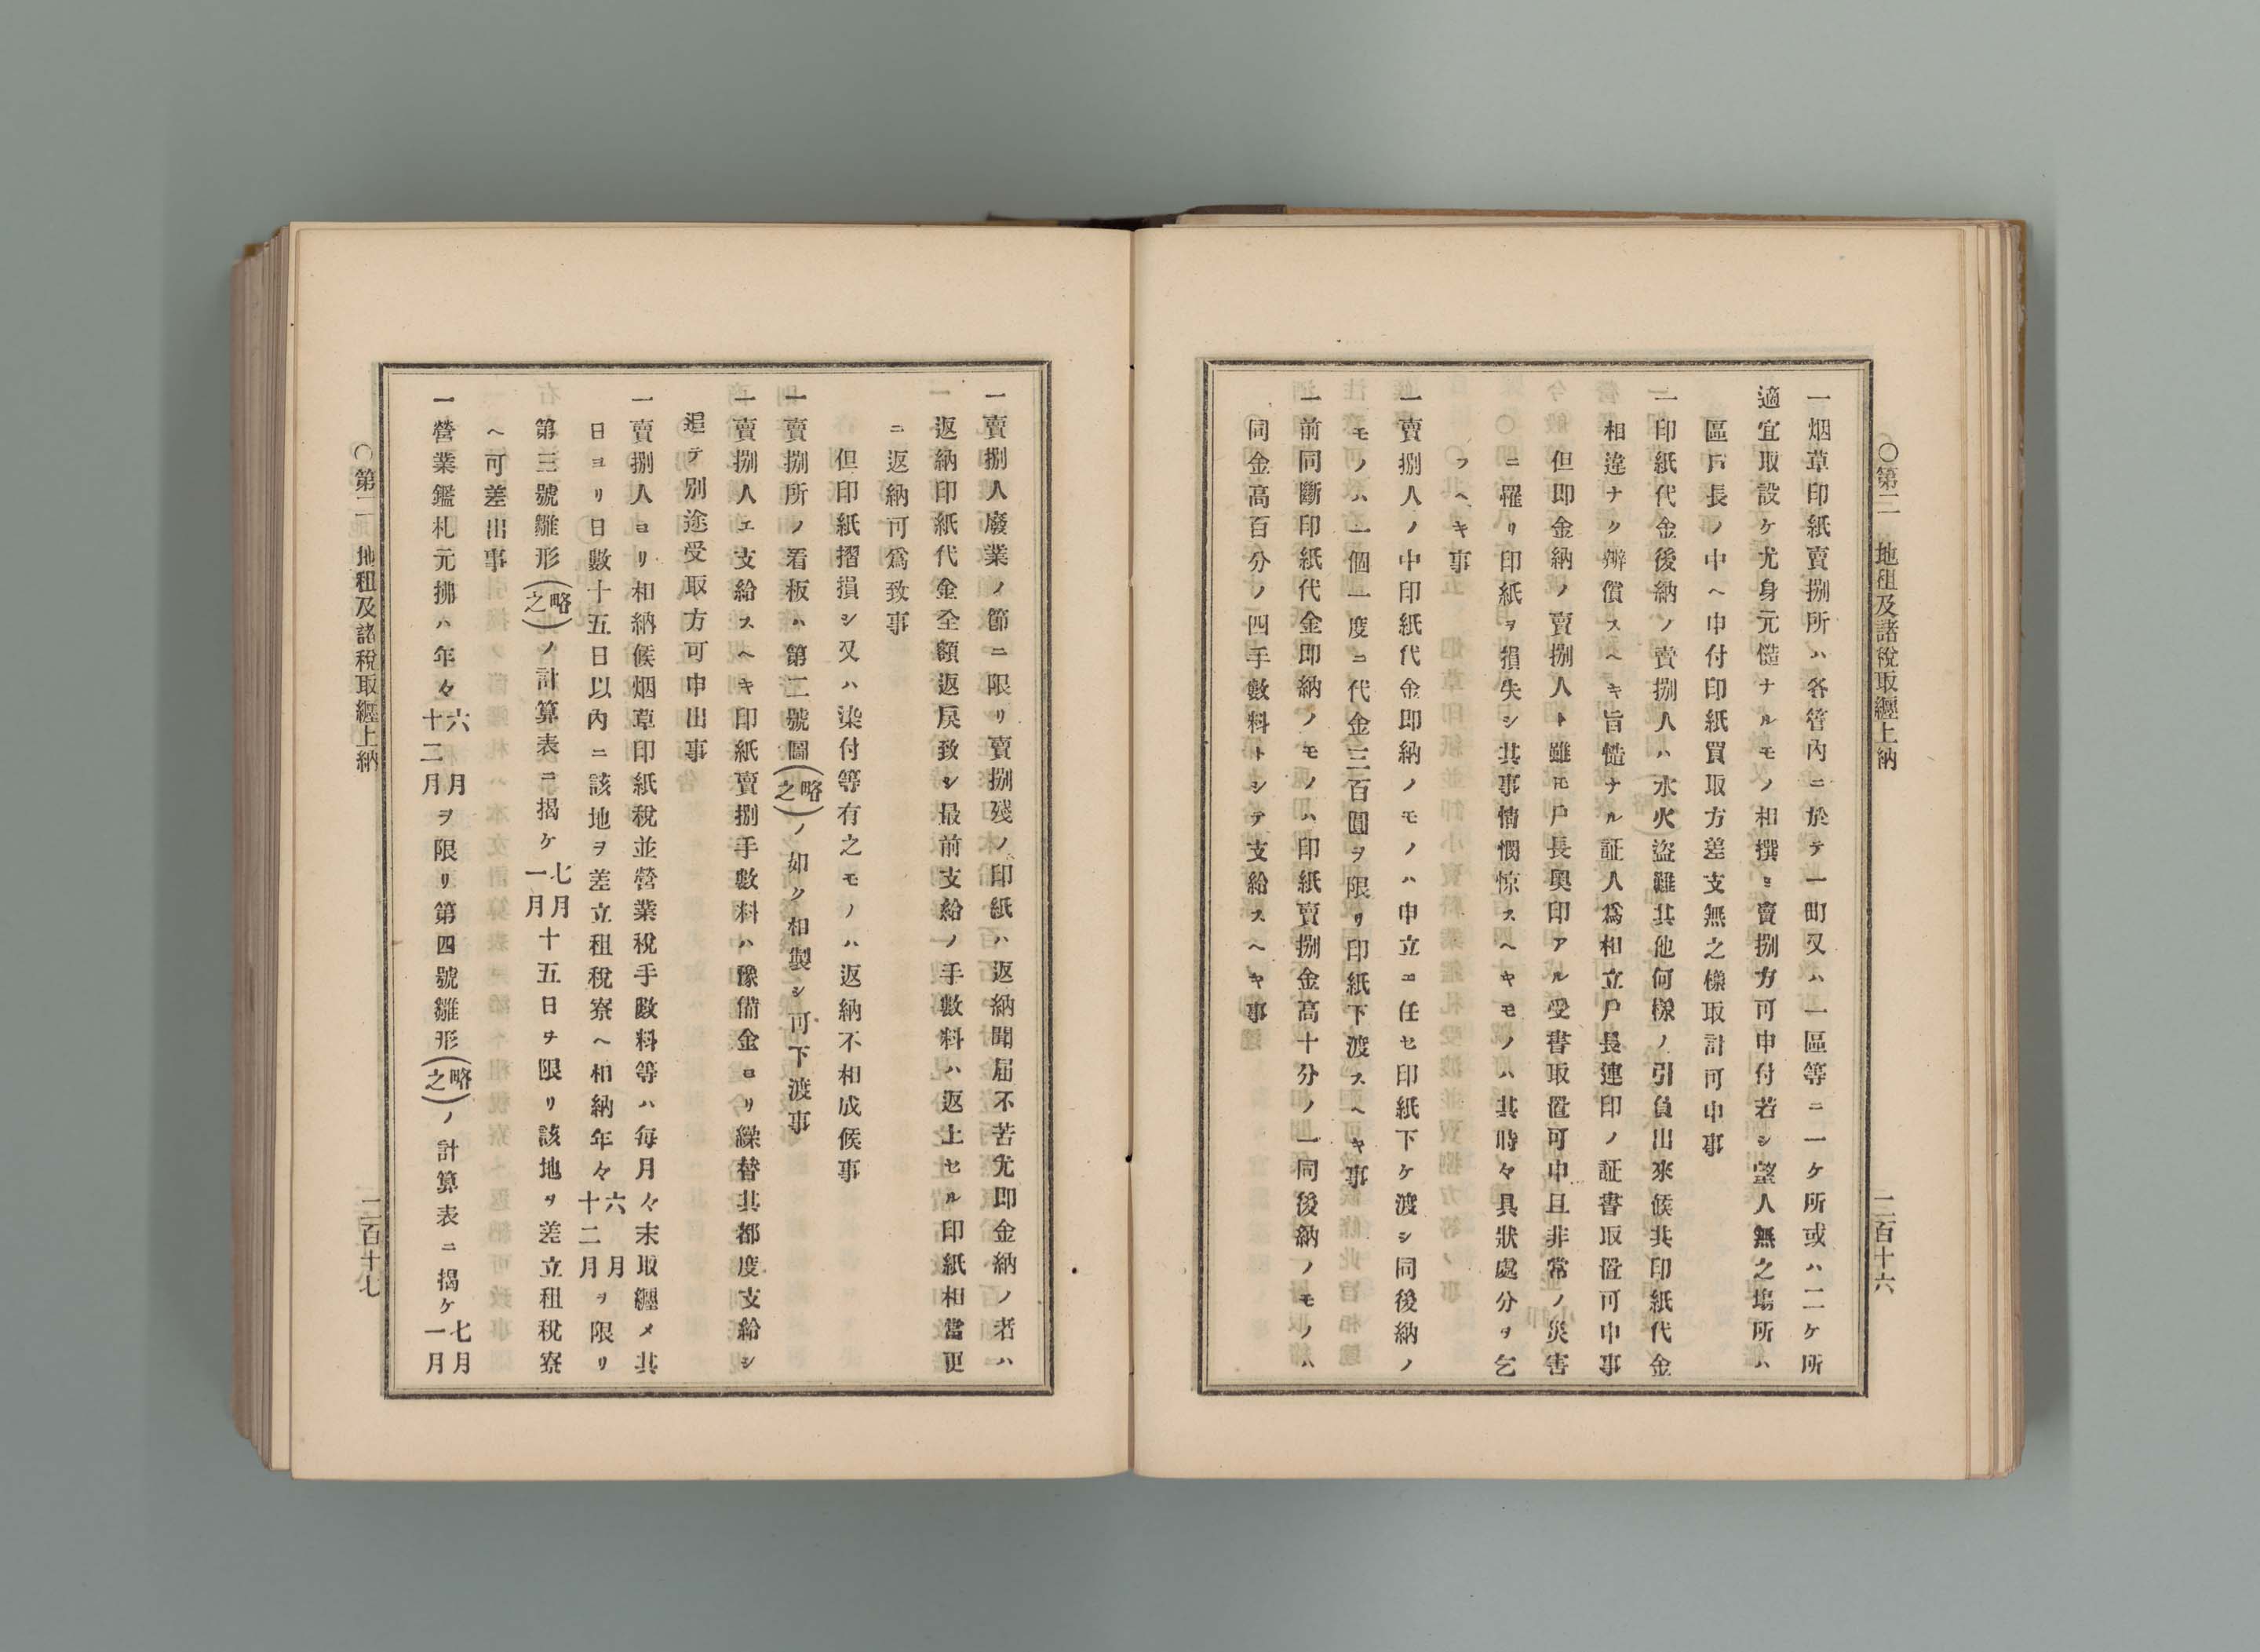 〇第二　地租及諸稅取纒上納
二百十六
一烟草印紙賣捌所ハ各管內ニ於テ一町又ハ一區等ニ一ケ所或ハ二ケ所
適宜取設ケ尤身元慥ナルモノ相撰ヨ賣捌方可申付若シ望人無之塲所ハ
區戶長ノ中ヘ申付印紙買取方差支無之樣取計可申事
一印紙代金後納ノ賣捌人ハ水火盜難其他何樣ノ引負出來候共印紙代金
相違ナク辨償スヘキ旨慥ナル証人爲相立戶長連印ノ証書取置可申事
但即金納ノ賣捌人ト雖モ戶長奧印アル受書取置可申且非常ノ災害
ニ罹リ印紙ヲ損失シ其事情憫惊スヘキモノハ其時々具狀處分ヲ乞
フヘキ事
一賣捌人ノ中印紙代金即納ノモノハ申立ニ任セ印紙下ケ渡シ同後納ノ
モノハ一個一度ニ代金三百圓ヲ限リ印紙下渡スヘキ事
一前同斷印紙代金即納ノモノハ印紙賣捌金高十分ノ一同後納ノモノハ
同金高百分ノ四手數料トシテ支給スヘキ事
一賣捌人廢業ノ節ニ限リ賣捌殘ノ印紙ハ返納聞屆不苦尤即金納ノ者ハ
返納印紙代金全額返戾致シ最前支給ノ手數料ハ返上セル印紙相當更
ニ返納可爲致事
但印紙摺損シ又ハ染付等有之モノハ返納不相成候事
一賣捌所ノ看板ハ第二號圖(略之)ノ如ク相製シ可下渡事
一賣捌人エ支給スヘキ印紙賣捌手數料ハ豫備金ヨリ繰替其都度支給シ
追テ別途受取方可申出事
一賣捌人ヨリ相納候烟草印紙稅並營業稅手數料等ハ每月々末取纒メ其
日ヨリ日數十五日以內ニ該地ヲ差立租稅寮ヘ相納年々六月十二月ヲ限リ
第三號雛形(略之)ノ計算表ニ揭ケ七月一月十五日ヲ限リ該地ヲ差立租稅寮
ヘ可差出事
一營業鑑札元拂ハ年々六月十二月ヲ限リ第四號雛形(略之)ノ計算表ニ揭ケ七月一月
〇第二　地租及諸稅取纒上納
二百十七